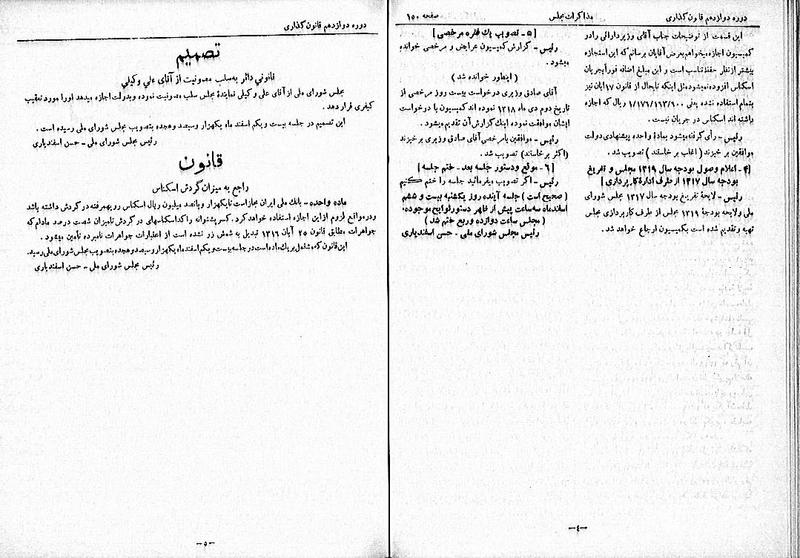 دوره دوازدهم قانون گذاری
مذاکرات مجلس
صفحه ۱۵۰
این قسمت از توضیحات جناب آقای وزیر دارائی را در
کمیسیون اجازه میخواهم بعرض آقایان برسانم که این استجازه
بیشتر از نظر حفظ تناسب است و این مبلغ اضافه فوراً بجریان
اسکناس افزوده نمیشود مثل اینکه تا بحال از قانون ۱۷ آبان نیز
بتمام استفاده نشده یعنی ۱/۱۷۶/۱۱۳/۹۰۰ ریال که اجازه
داشته اند اسکناس در جریان نیست.
رئیس - رأی گرفته میشود بمادۀ واحده پیشنهادی دولت
موافقین بر خیزند (اغلب بر خاستند) تصویب شد.
[۴ - اعلام وصول بودجه سال ۱۳۱۹ مجلس و تفریغ
بودجه سال ۱۳۱۷ از طرف ادارۀ کارپردازی]
رئیس - لایحۀ تفریغ بودجه سال ۱۳۱۷ مجلس شورای
ملی ولایحه بودجۀ ۱۳۱۹ مجلس از طرف کارپردازی مجلس
تهیه و تقدیم شده است بکمیسیون ارجاع خواهد شد.
[۵ - تصویب یک فقره مرخصی]
رئیس - گزارش کمیسیون عرایض و مرخصی خوانده
میشود.
(اینطور خوانده شد)
آقای صادق وزیری درخواست بیست روز مرخصی از
تاریخ دوم دی ماه ۱۳۱۸ نموده اند کمیسیون با درخواست
ایشان موافقت نموده اینک گزارش آن تقدیم میشود.
رئیس - موافقین با مرخصی آقای صادق وزیری بر خیزند
(اکثر بر خاستند) تصویب شد.
[۶ - موقع و دستور جلسه بعد - ختم جلسه]
رئیس - اگر تصویب میفرمائید جلسه را ختم کنیم
(صحیح است) جلسه آینده روز یکشنبه بیست و ششم
اسفندماه سه ساعت پیش از ظهر دستور لوایح موجوده.
(مجلس ساعت دوازده و ربع ختم شد)
رئیس مجلس شورای ملی - حسن اسفندیاری
-۴-
دوره دوازدهم قانون گذاری
تصمیم
قانونی دائر به سلب مصونیت از آقای علی وکیلی
مجلس شورای ملی از آقای علی وکیلی نمایندۀ مجلس سلب مصونیت نموده و بدولت اجازه میدهد او را مورد تعقیب
کیفری قرار دهد.
این تصمیم در جلسه بیست و یکم اسفند ماه یکهزار و سیصد و هجده بتصویب مجلس شورای ملی رسیده است.
رئیس مجلس شورای ملی - حسن اسفندیاری
قانون
راجع به میزان گردش اسکناس
ماده واحده - بانک ملی ایران مجاز است تا یکهزار و پانصد میلیون ریال اسکناس رویهمرفته در گردش داشته باشد
و در مواقع لزوم از این اجازه استفاده خواهد کرد. کسر پشتوانه را که اسکناسهای در گردش تا میزان شصت درصد مادام که
جواهرات مطابق قانون ۲۵ آبان ۱۳۱۶ تبدیل به شمش زر نشده است از اعتبارات جواهرات نامبرده تأمین میشود.
این قانون که مشتمل بر یک ماده است در جلسه بیست و یکم اسفند ماه یکهزار و سیصد و هجده بتصویب مجلس شورای ملی رسید.
رئیس مجلس شورای ملی - حسن اسفندیاری
-۵-